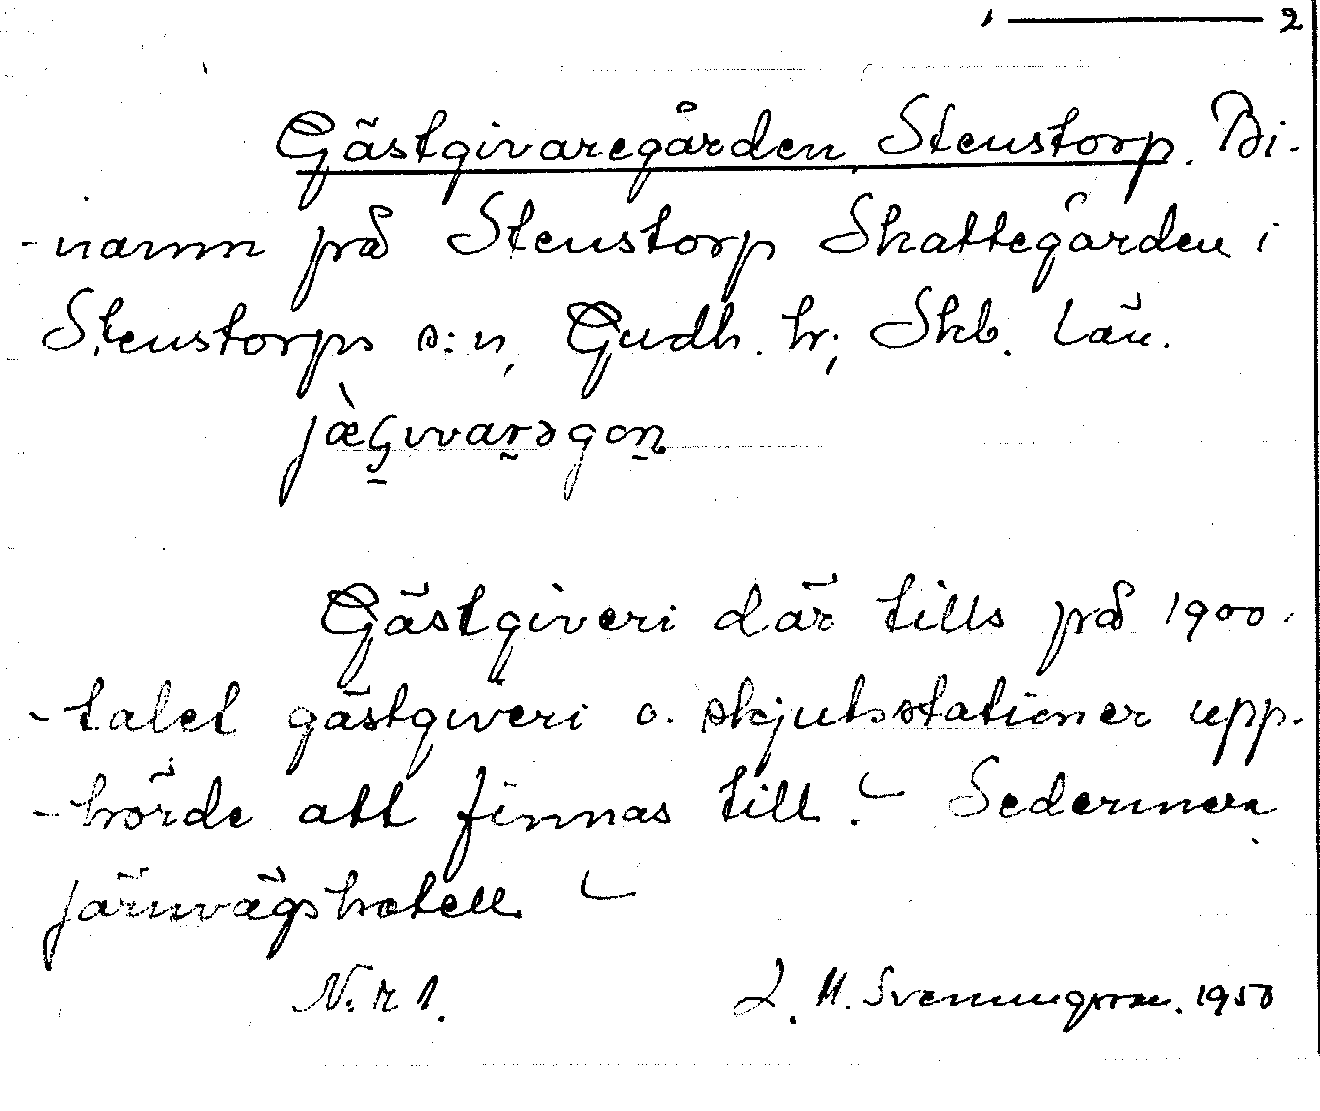 2
Gästgivaregården, Stenstorp. Bi-
-namn på Stenstorp Skattegården i
Stenstorps s:n, Gudh. hr; Skb. län.

Gästgiveri där tills på 1900-
-talet gästgiveri o. skjutsstationer upp-
-hörde att finnas till. Sedermera
järnvägshotell.
N:r 1. L. M. Svenungsson. 1950